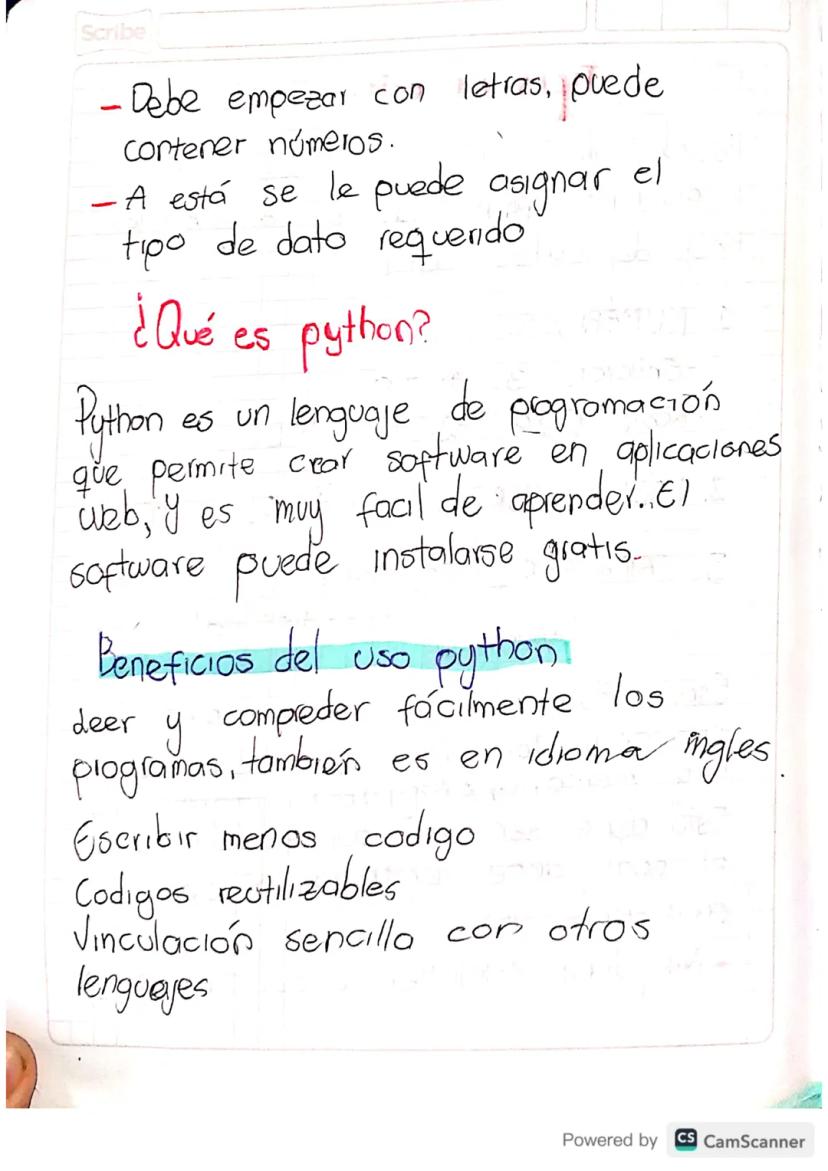 Scribe
- Debe empezar con letras, puede
contener números.
- A está se le puede asignar el
tipo de dato requerido
¿Qué es python?
Python es un lenguaje de programación
que permite crar software en aplicaciones
web, y es muy facil de aprender.. El
software puede instalarse gratis.
Beneficios del uso python
deer y compreder fácilmente los
programas, también es en idioma ingles.
Escribir menos codigo
Codigos reutilizables
Vinculación sencilla con otros
lenguajes
Powered by CS CamScanner